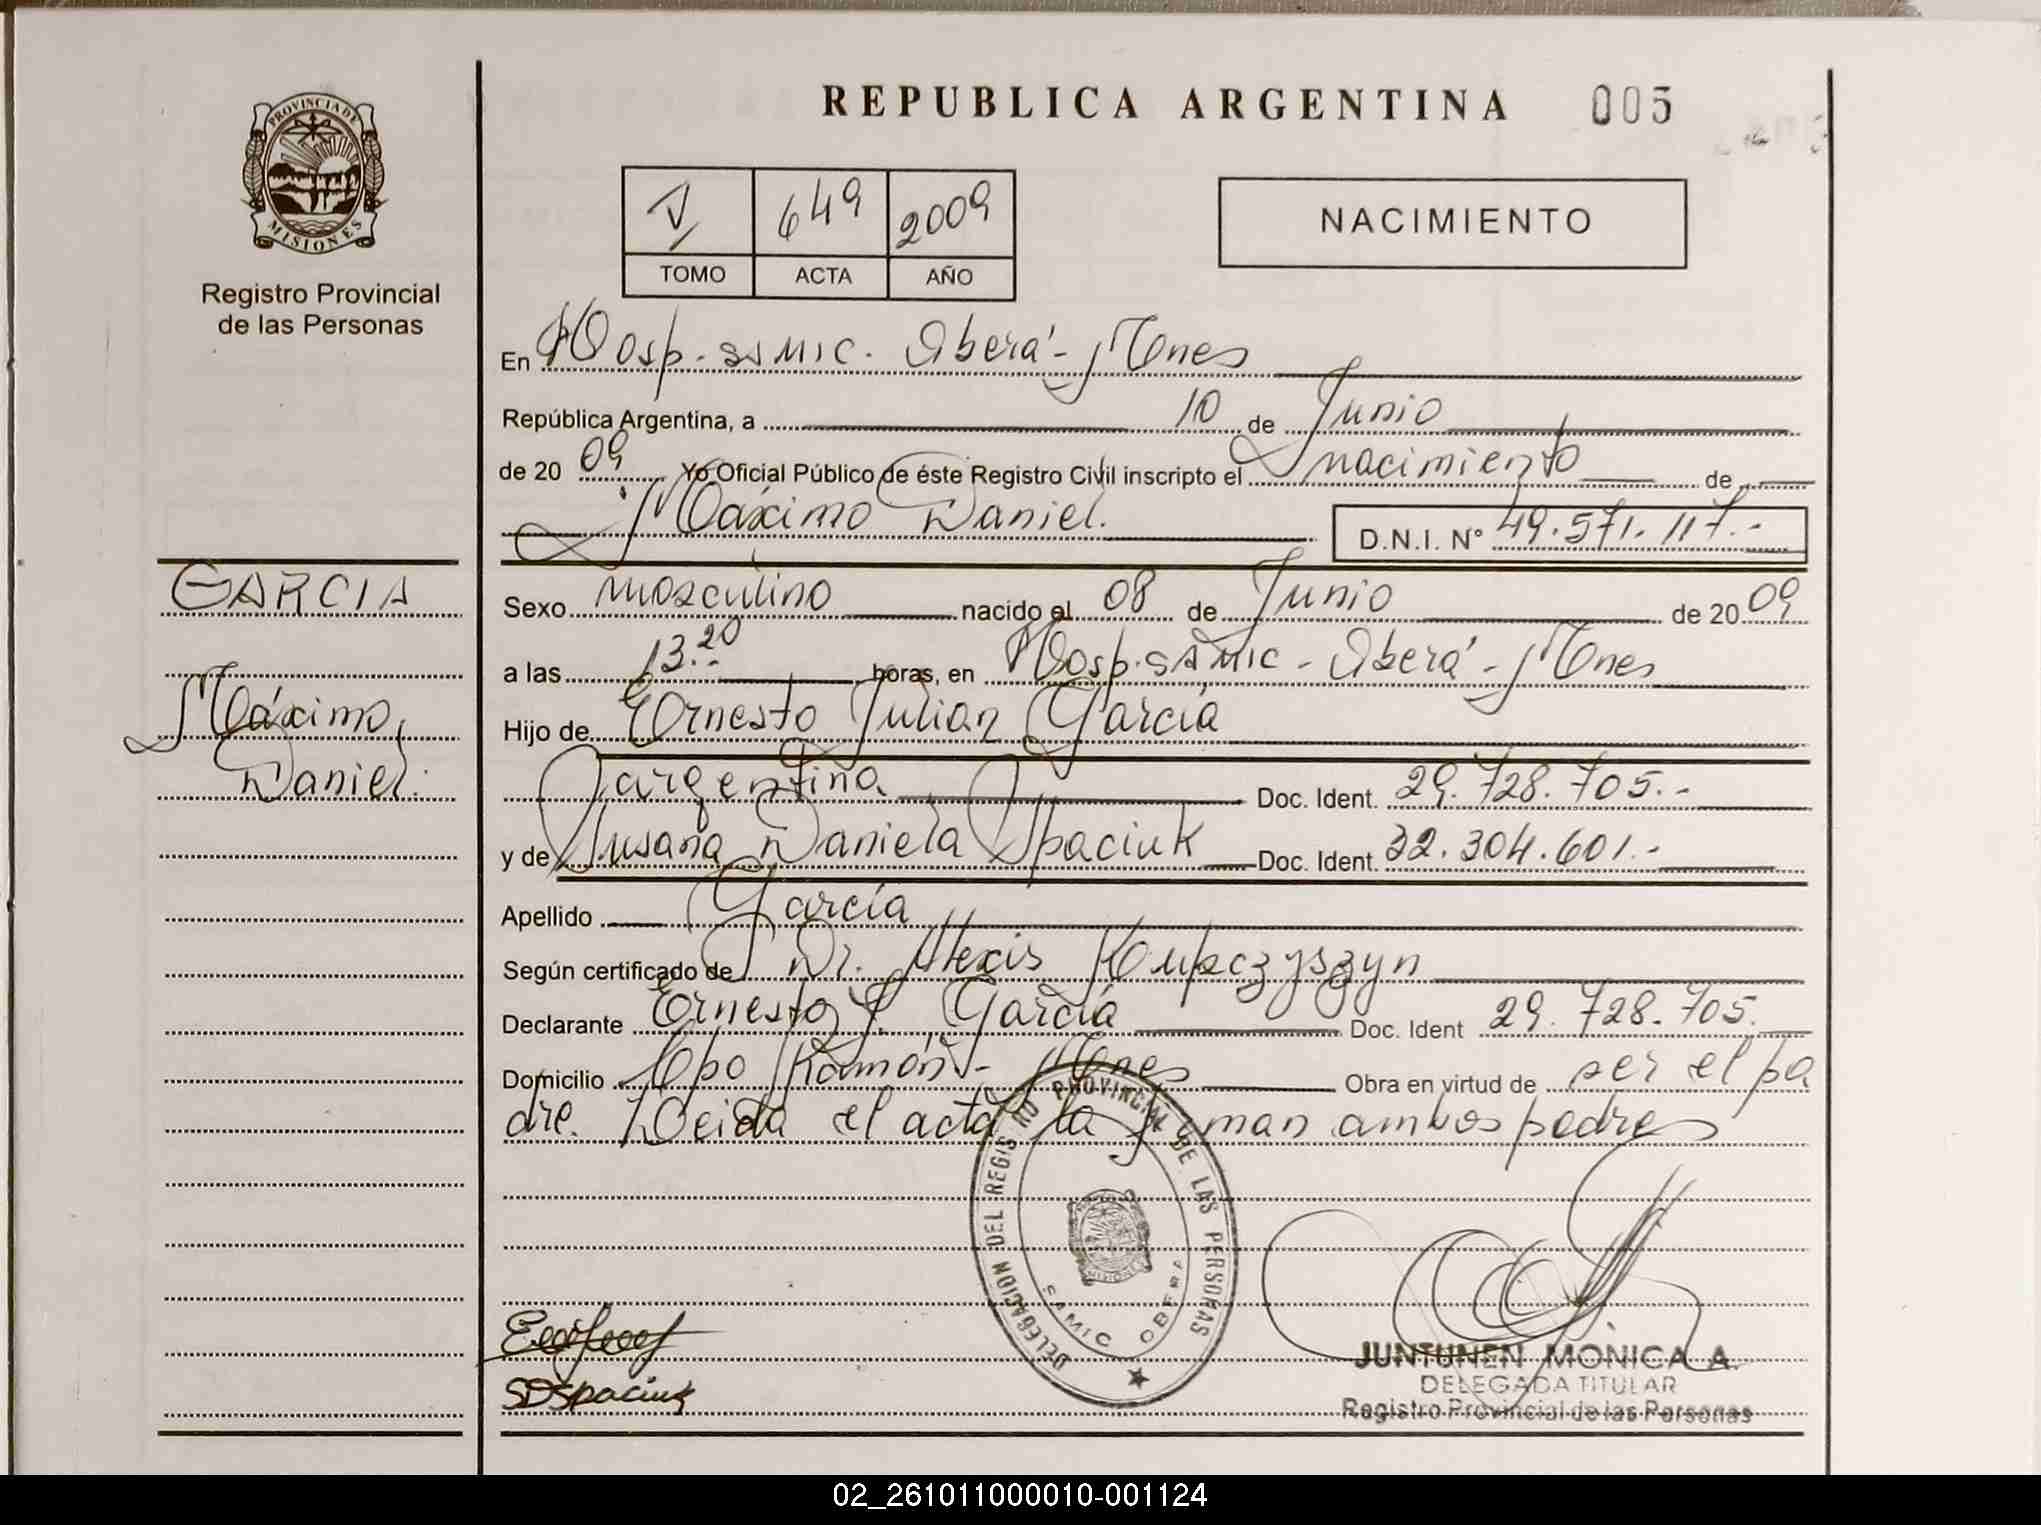 REPUBLICA ARGENTINA 005
PROVINCIA DE MISIONES
Registro Provincial
de las Personas
V 649 2009
TOMO ACTA AÑO
NACIMIENTO
En Hosp. SAMIC. Oberá - Mnes
República Argentina, a 10 de Junio
de 20 09 Yo Oficial Público de éste Registro Civil inscripto el nacimiento de
Máximo Daniel. D.N.I. N° 49.571.117.-
GARCIA
Máximo,
Daniel.
Sexo masculino nacido el 08 de Junio de 20 09
a las 13.20 horas, en Hosp. SAMIC - Oberá - Mnes
Hijo de Ernesto Julian García
argentina Doc. Ident. 29.728.705.-
y de Susana Daniela Spaciuk Doc. Ident. 32.304.601.-
Apellido García
Según certificado de Dr. Alexis Kupczyszyn
Declarante Ernesto J. García Doc. Ident 29.728.705.
Domicilio Cpo Ramón - Mnes Obra en virtud de ser el pa
dre. Leida el acta la firman ambos padres
DELEGACION DEL REGISTRO PROVINCIAL DE LAS PERSONAS
SAMIC OBERA
MISIONES
SDSpaciuk
JUNTUNEN MONICA A.
DELEGADA TITULAR
Registro Provincial de las Personas
02_261011000010-001124